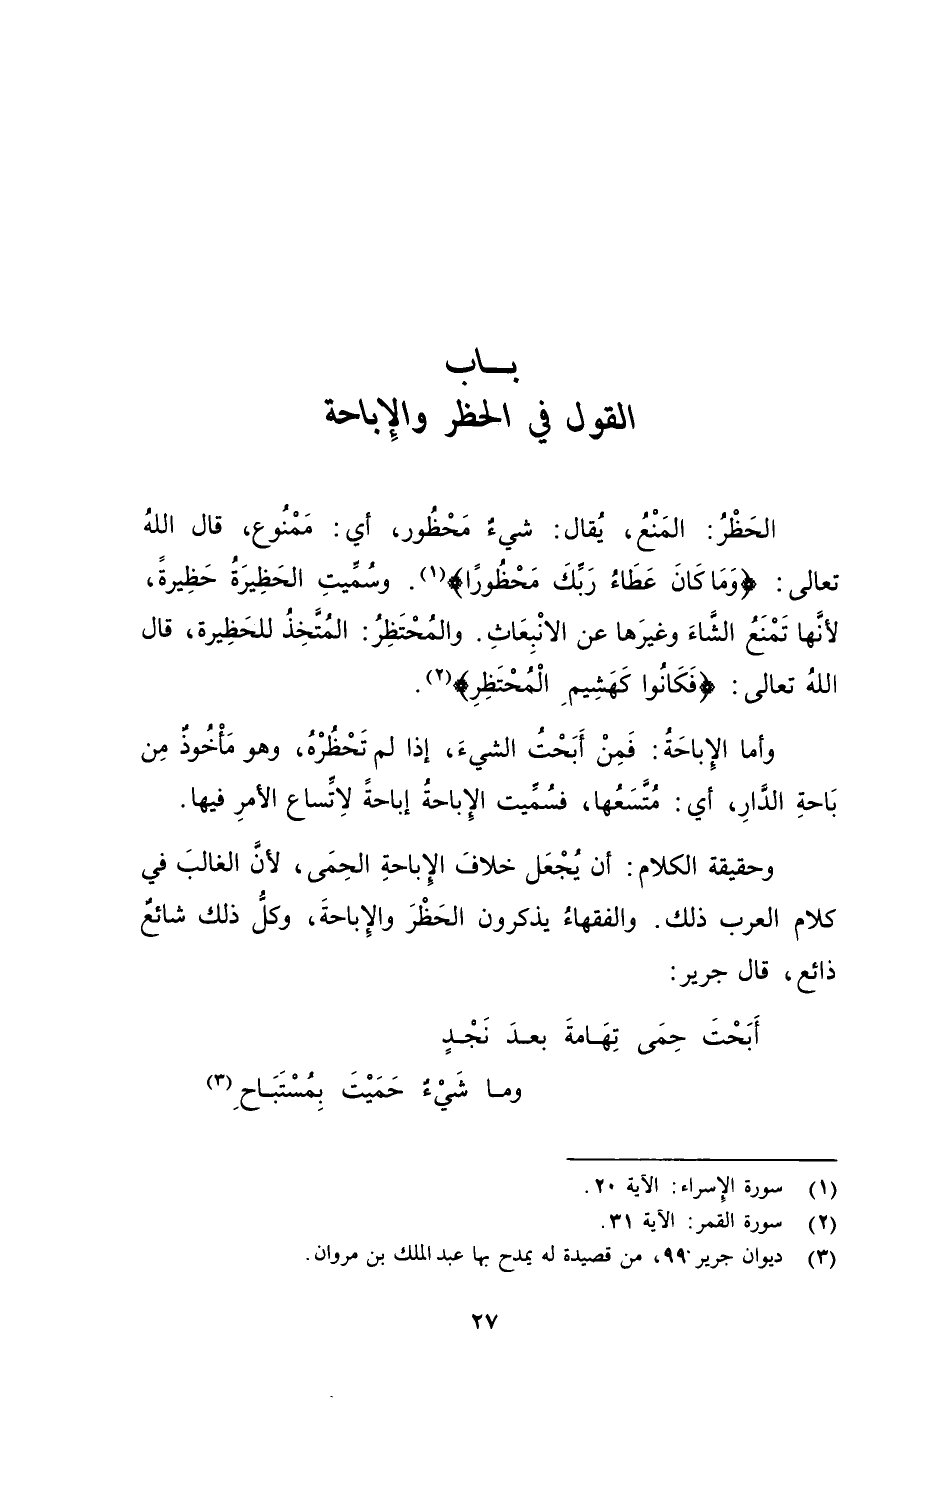 بـــاب
القول في الحظر والإِباحة
الحَظْرُ: المَنْعُ، يُقال: شيءٌ مَحْظُور، أي: مَمْنُوع، قال اللهُ
تعالى: ﴿وَمَا كَانَ عَطَاءُ رَبِّكَ مَحْظُورًا﴾(١). وسُمِّيتِ الحَظِيرَةُ حَظِيرةً،
لأنَّها تَمْنَعُ الشَّاءَ وغيرَها عن الانْبِعَاثِ. والمُحْتَظِرُ: المُتَّخِذُ للحَظِيرة، قال
اللهُ تعالى: ﴿فَكَانُوا كَهَشِيمِ الْمُحْتَظِرِ﴾(٢).
وأما الإِباحَةُ: فَمِنْ أَبَحْتُ الشيءَ، إذا لم تَحْظُرْهُ، وهو مَأْخُوذٌ مِن
بَاحةِ الدَّارِ، أي: مُتَّسَعُها، فسُمِّيت الإِباحةُ إباحةً لِاتِّساع الأمرِ فيها.
وحقيقة الكلام: أن يُجْعَل خلافَ الإِباحةِ الحِمَى، لأنَّ الغالبَ في
كلام العرب ذلك. والفقهاءُ يذكرون الحَظْرَ والإِباحةَ، وكلُّ ذلك شائعٌ
ذائع، قال جرير:
أَبَحْتَ حِمَى تِهَـامةَ بعـدَ نَجْـدٍ
ومـا شَيْءٌ حَمَيْتَ بِمُسْتَبَـاحِ(٣)
(١) سورة الإِسراء: الآية ٢٠.
(٢) سورة القمر: الآية ٣١.
(٣) ديوان جرير ٩٩، من قصيدة له يمدح بها عبد الملك بن مروان.
٢٧